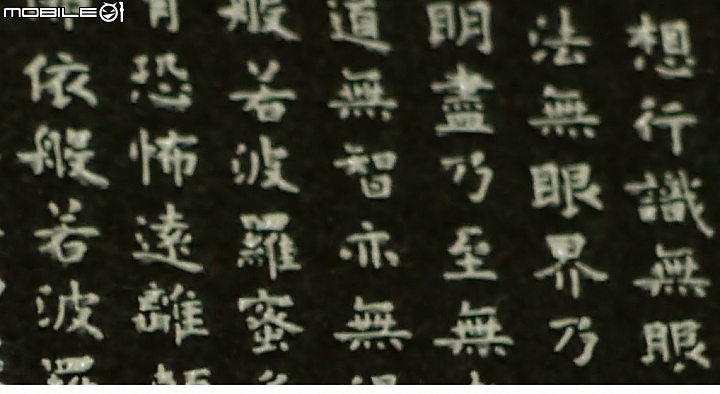 MOBILE01
想行識無眼
法無眼界乃
明盡乃至無
道無智亦無
般若波羅蜜
恐怖遠離
依般若波